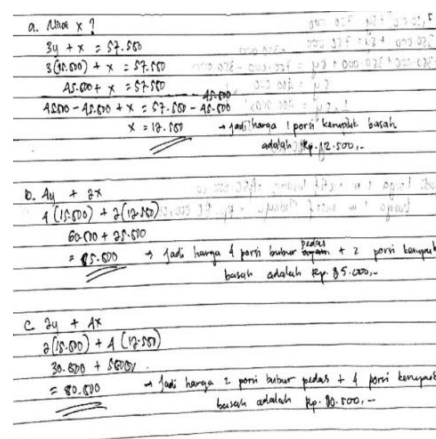 a. Nilai x ?
3y + x = 57.500
3(15.000) + x = 57.500
45.000 + x = 57.500
45.000 - 45.000 + x = 57.500 - 45.000
x = 12.500 → jadi harga 1 porsi kerupuk basah
adalah Rp. 12.500,-
b. 4y + 2x
4 (15.000) + 2(12.500)
60.000 + 25.000
= 85.000 → Jadi harga 4 porsi bubur pedas + 2 porsi kerupuk
basah adalah Rp. 85.000,-
c. 2y + 4x
2(15.000) + 4 (12.500)
30.000 + 50000
= 80.000 → Jadi harga 2 porsi bubur pedas + 4 porsi kerupuk
basah adalah Rp. 80.000,-